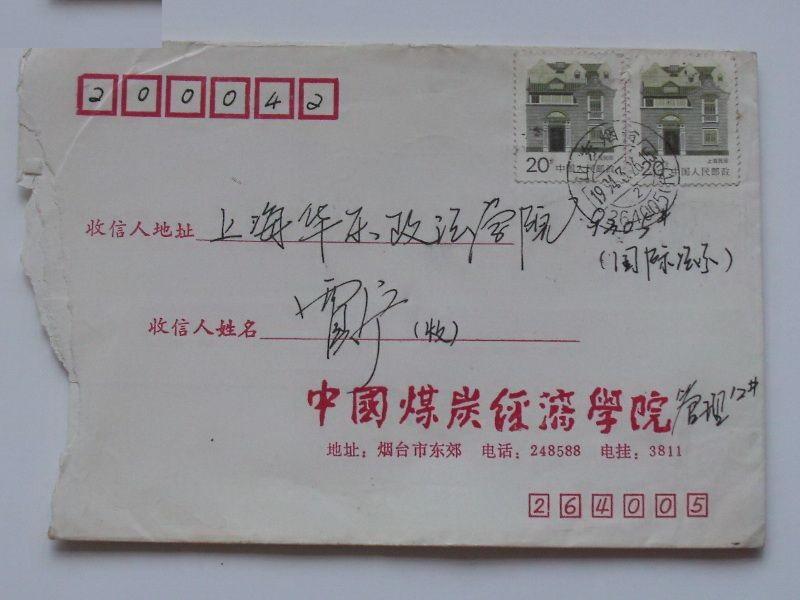 200042
20分 中国人民邮政
上海民居
20分 中国人民邮政
山东烟台
264005
收信人地址 上海华东政法学院
(国际法系)
收信人姓名 (收)
中國煤炭經濟學院 管理12#
地址:烟台市东郊 电话:248588 电挂:3811
264005